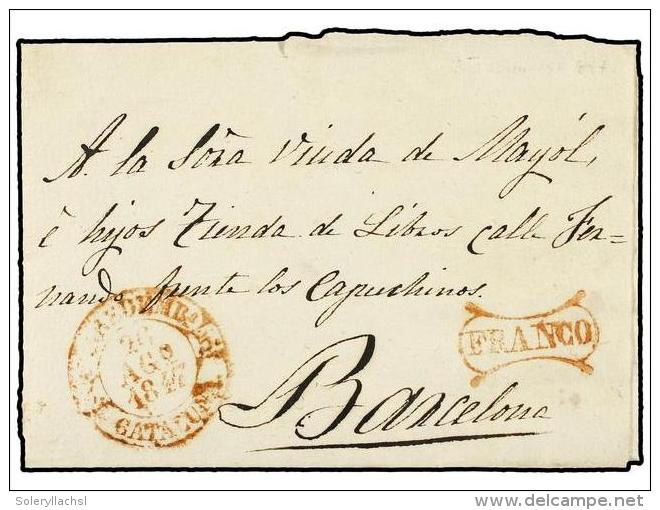 A. la Sõra Viuda de Mayól,
é hijos Tienda de Libros calle Fer=
nando frente los Capuchinos.
FRANCO
26
AGO
1847
CATALUÑA
Barcelona
Soleryllachsl
delcampe.net